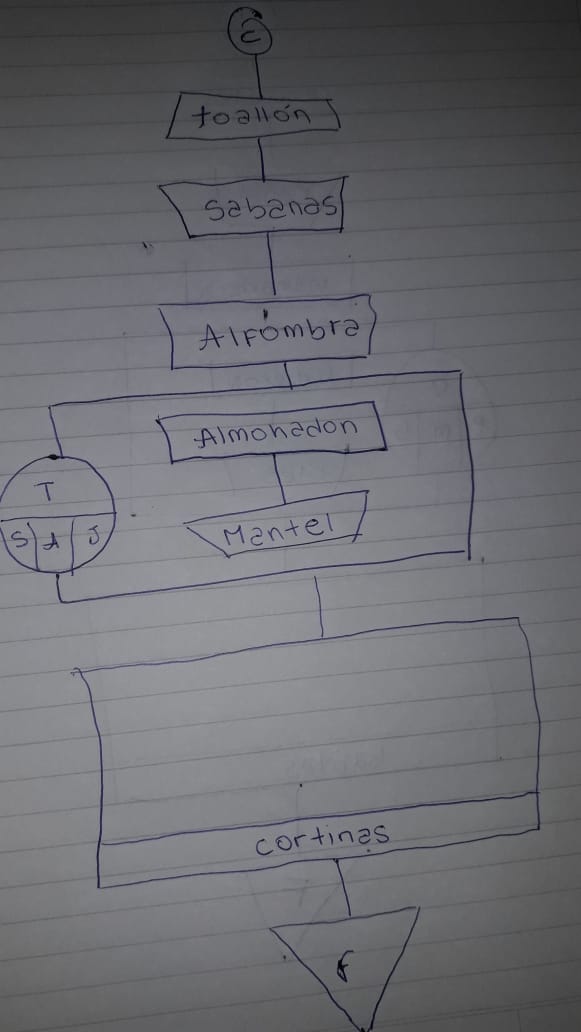 C
toallón
Sabanas
Alfombra
Almohadon
T
S A J
Mantel
cortinas
f